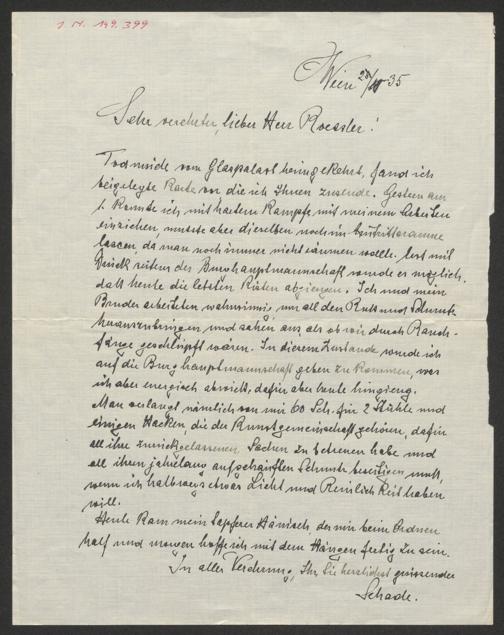 I. N. 149.399
Wien 28/11 35
Sehr verehrter, lieber Herr Roessler!
Todmüde vom Glaspalast heimgekehrt, fand ich
beigelegte Karte vor die ich Ihnen zusende. Gestern am
1. konnte ich, mit hartem Kampfe mit meinem Arbeiten
einziehen, musste aber dieselben noch im
lassen, da man noch immer nicht räumen wollte. Erst mit
Druck seitens der Burghauptmannschaft wurde es möglich,
daß heute die letzten Kisten abgiengen. Ich und mein
Bruder arbeiteten wahnsinnig, um all den Ruß und Schmutz
herauszubringen und sahen aus, als ob wir durch Rauch-
fänge geschlüpft wären. In diesem Zustande wurde ich
auf die Burghauptmannschaft gebeten zu kommen, was
ich aber energisch abwies, dafür aber heute hingieng.
Man verlangt nämlich von mir 60 Sch. für 2 Stühle und
einigen Hacken, die der Kunstgemeinschaft gehören, dafür
all ihre zurückgelassenen Sachen zu betreuen habe und
all ihren jahrelang aufgehäuften Schmutz beseitigen muß,
wenn ich halbwegs etwas Licht und Reinlichkeit haben
will.
Heute kam mein tapferer Hänisch, der mir beim Ordnen
half und morgen hoffe ich mit dem Hängen fertig zu sein.
In aller Verehrung, Ihr Sie herzlichst grüssender
Schade.